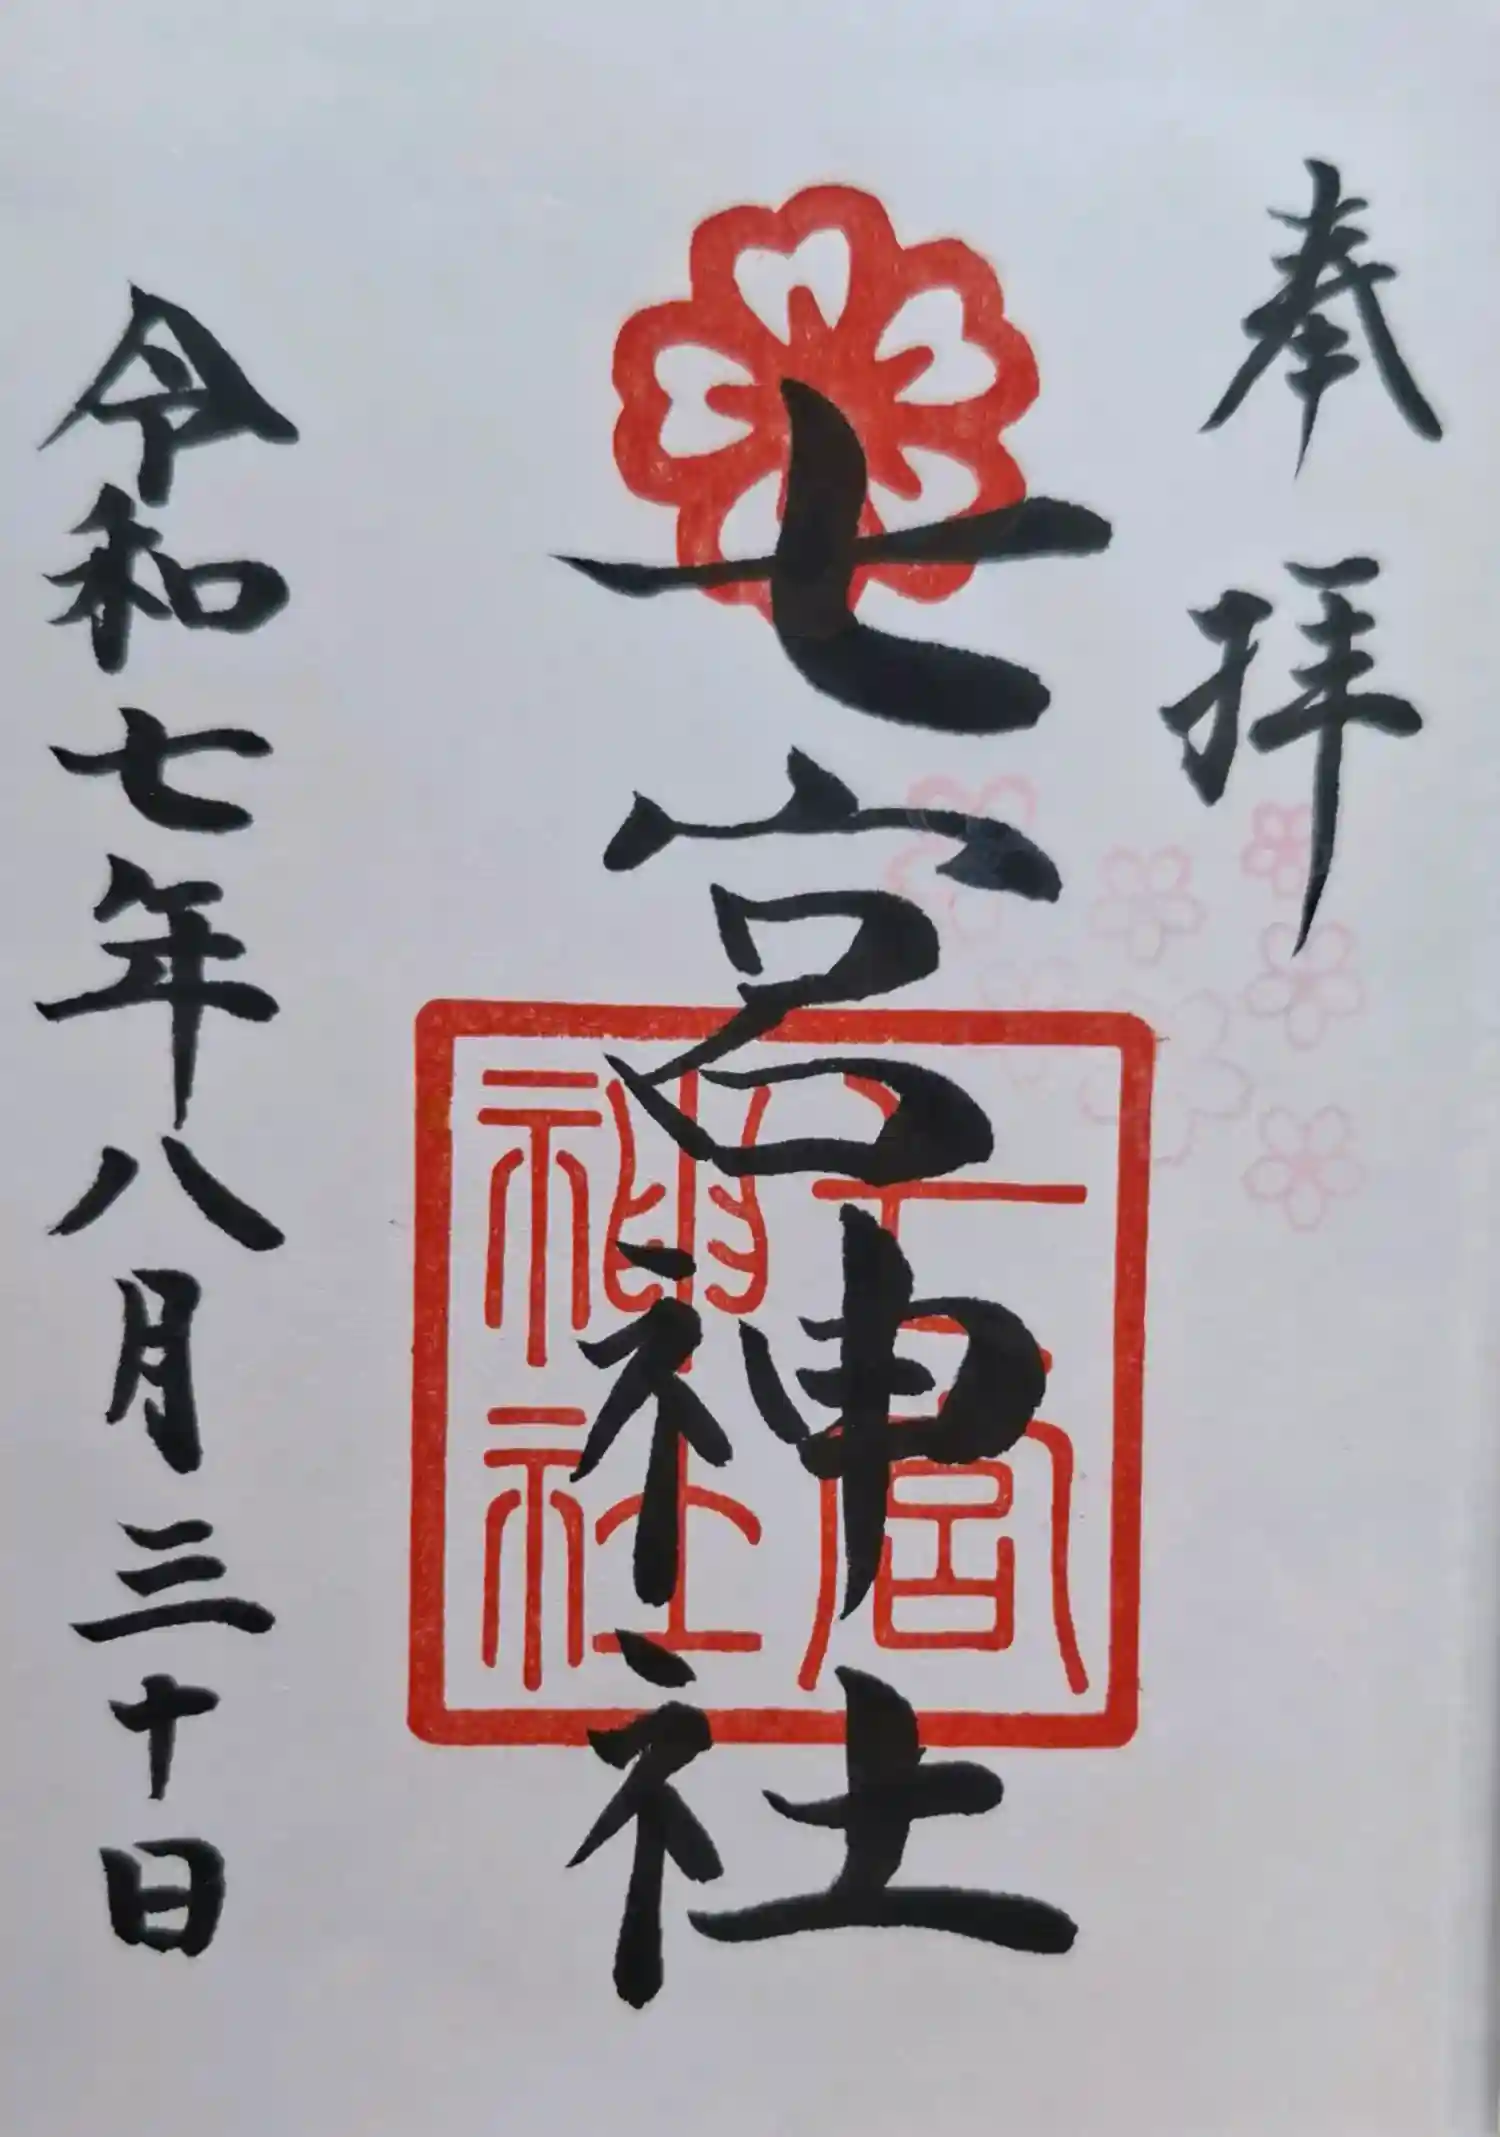 奉拝
七宮神社
七宮
神社
令和七年八月三十日